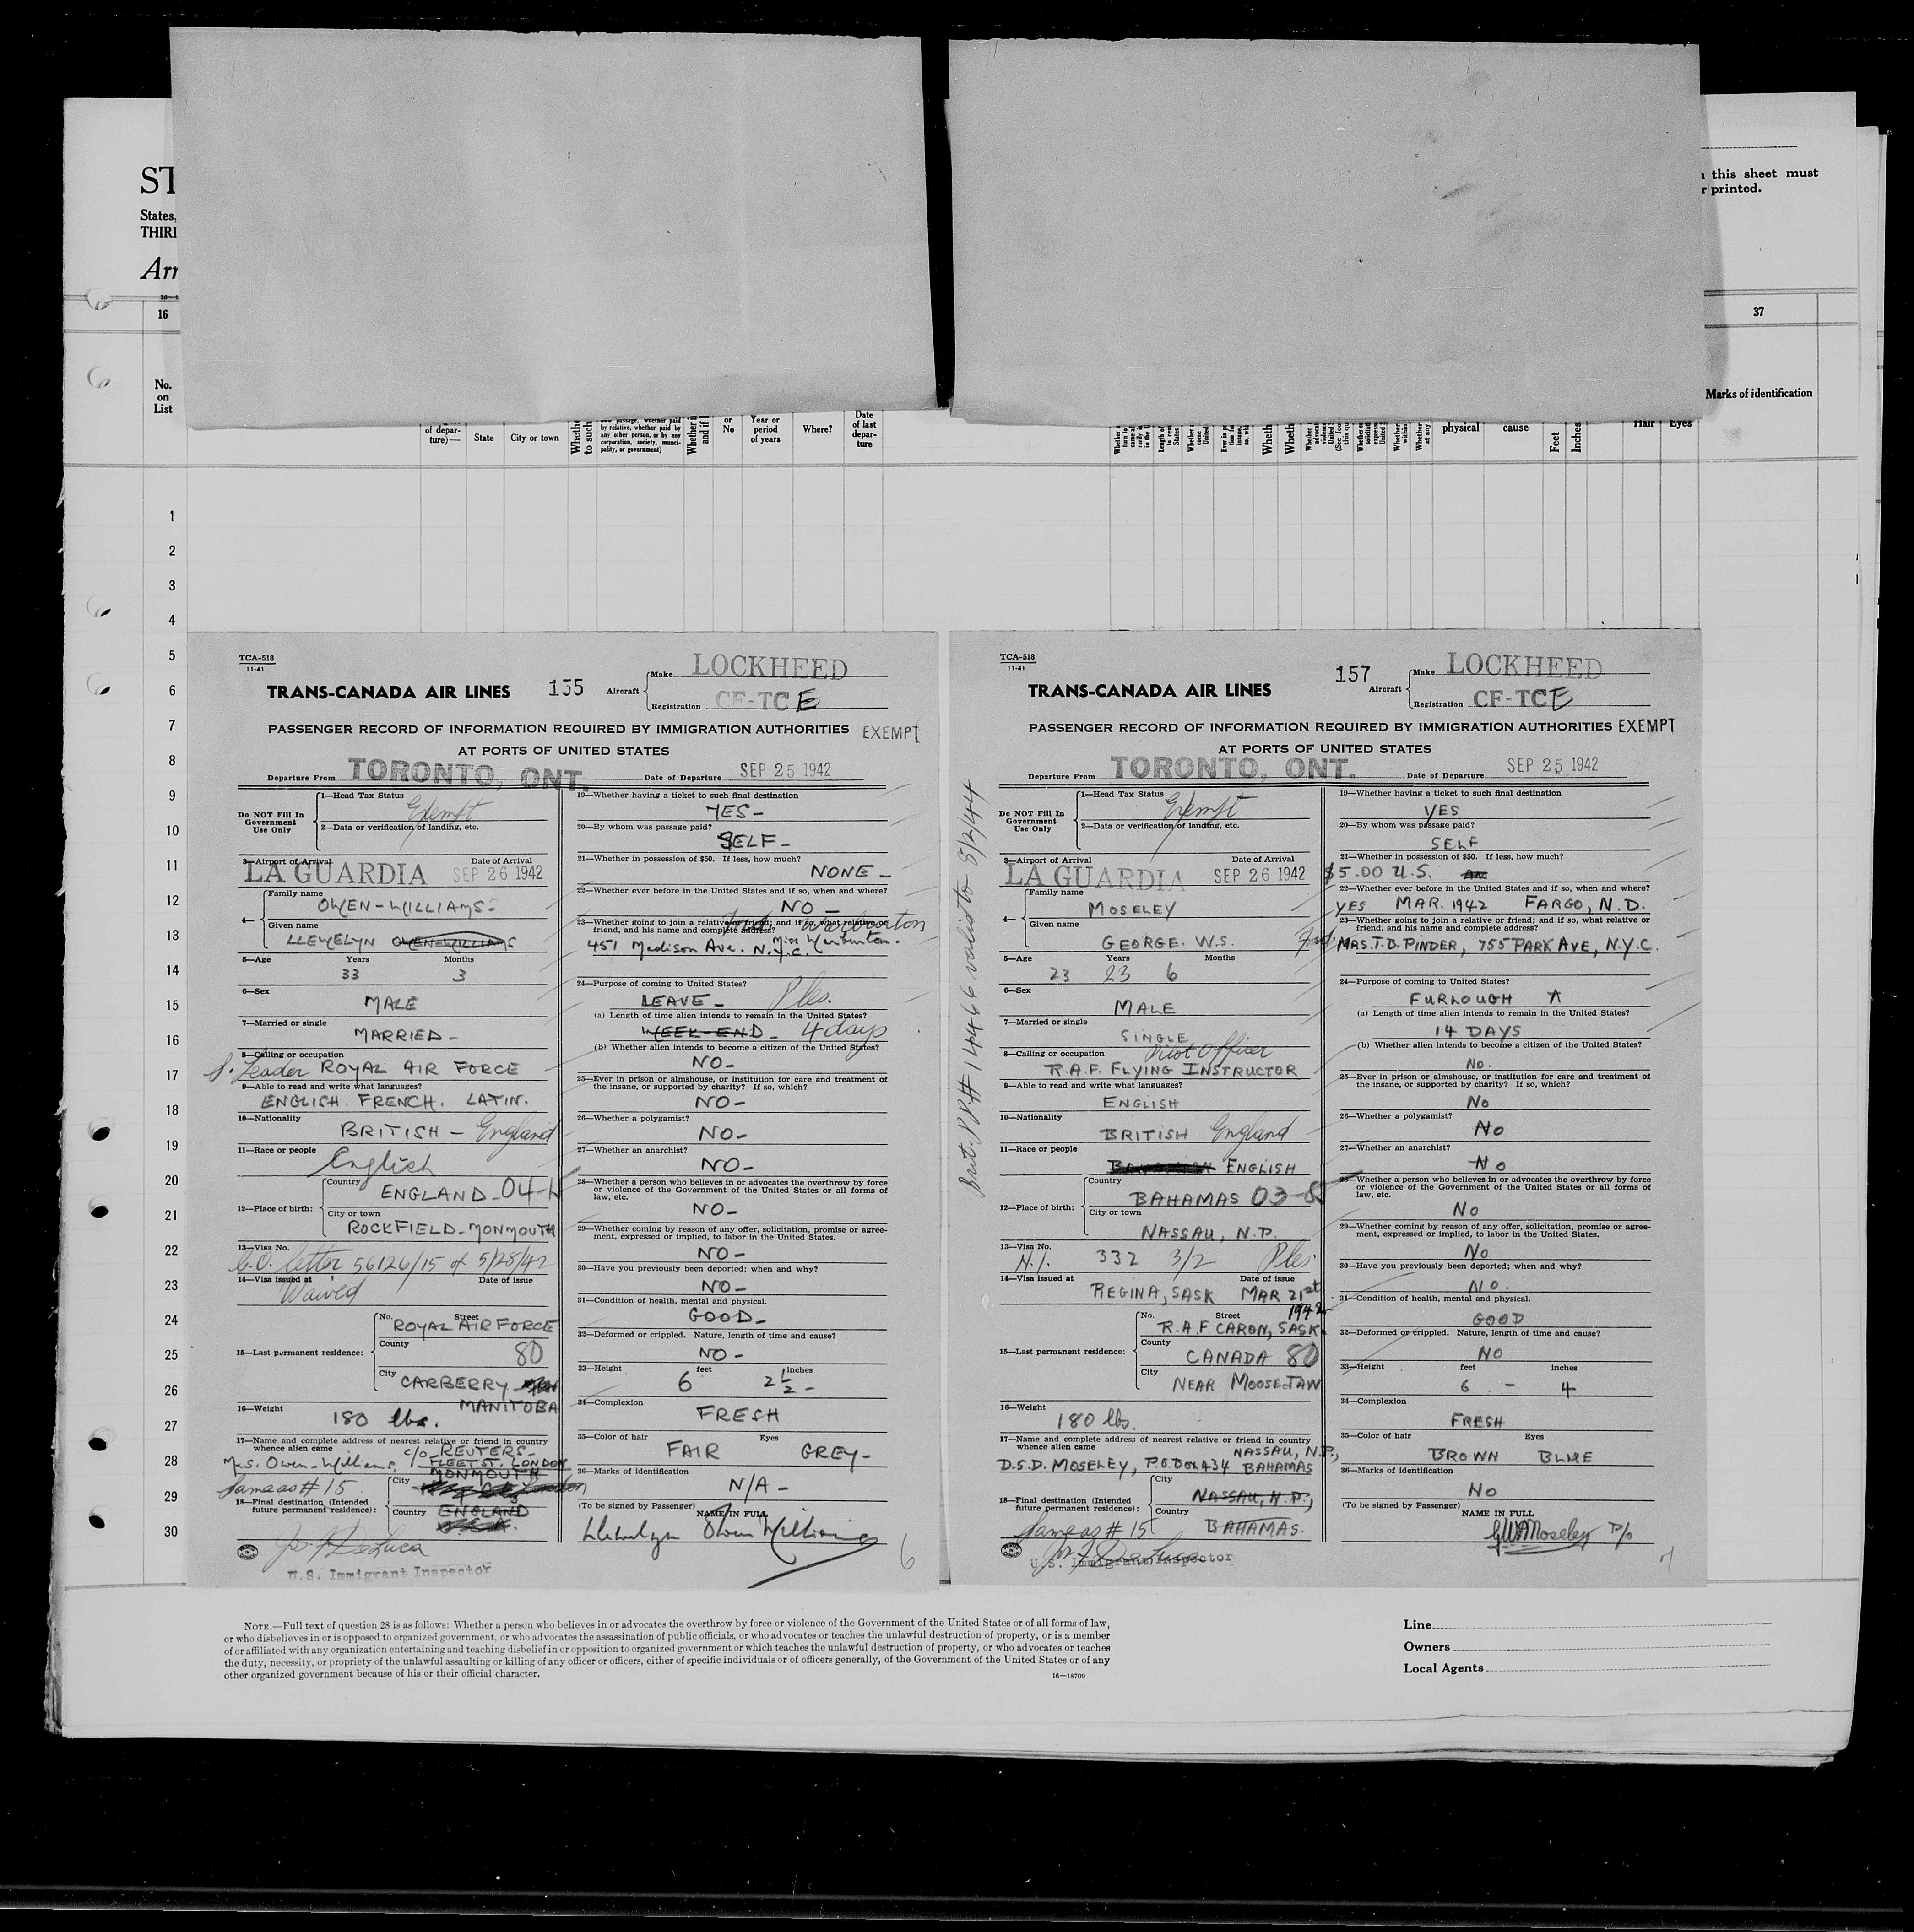 ST
States,
THIRD
Arr
16
No.
on
List
of depar-
ture)—
State
City or town
or
No
Year or
period
of years
Where?
Date
of last
depar-
ture
this sheet must
r printed.
37
Marks of identification
physical
cause
Feet
Inches
Hair
Eyes
1
2
3
4
5
6
7
8
9
10
11
12
13
14
15
16
17
18
19
20
21
22
23
24
25
26
27
28
29
30
TCA-518
11-41
TRANS-CANADA AIR LINES
155
Aircraft
Make LOCKHEED
Registration CF-TCE
PASSENGER RECORD OF INFORMATION REQUIRED BY IMMIGRATION AUTHORITIES EXEMPT
AT PORTS OF UNITED STATES
Departure From TORONTO, ONT. Date of Departure SEP 25 1942
Do NOT Fill In
Government
Use Only
1—Head Tax Status
Exempt
2—Data or verification of landing, etc.
3—Airport of Arrival Date of Arrival
LA GUARDIA SEP 26 1942
4—
Family name
OWEN-WILLIAMS-
Given name
LLEWELYN OWEN-WILLIAMS
5—Age Years Months
33 3
6—Sex
MALE
7—Married or single
MARRIED-
8—Calling or occupation
S. Leader ROYAL AIR FORCE
9—Able to read and write what languages?
ENGLISH. FRENCH. LATIN.
10—Nationality
BRITISH - England
11—Race or people
English
12—Place of birth:
Country
ENGLAND-04-
City or town
ROCKFIELD-MONMOUTH
13—Visa No.
C.O. letter 56126/15 of 5/28/42
14—Visa issued at Date of issue
Waived
15—Last permanent residence:
No. Street
ROYAL AIR FORCE
County
80
City
CARBERRY
MANITOBA
16—Weight
180 lbs.
17—Name and complete address of nearest relative or friend in country
whence alien came
c/o REUTERS-
Mrs. Owen-Williams, FLEET ST. LONDON
Same as #15
18—Final destination (Intended
future permanent residence):
City
MONMOUTH
Country
ENGLAND
U.S. Immigrant Inspector
19—Whether having a ticket to such final destination
YES-
20—By whom was passage paid?
SELF-
21—Whether in possession of $50. If less, how much?
NONE-
22—Whether ever before in the United States and if so, when and where?
NO-
23—Whether going to join a relative or friend; and if so, what relative or
friend, and his name and complete address?
451 Madison Ave. N.Y.C. Miss Warburton.
24—Purpose of coming to United States?
LEAVE- Ples.
(a) Length of time alien intends to remain in the United States?
WEEK-END- 4 days
(b) Whether alien intends to become a citizen of the United States?
NO-
25—Ever in prison or almshouse, or institution for care and treatment of
the insane, or supported by charity? If so, which?
NO-
26—Whether a polygamist?
NO-
27—Whether an anarchist?
NO-
28—Whether a person who believes in or advocates the overthrow by force
or violence of the Government of the United States or all forms of
law, etc.
NO-
29—Whether coming by reason of any offer, solicitation, promise or agree-
ment, expressed or implied, to labor in the United States.
NO-
30—Have you previously been deported; when and why?
NO-
31—Condition of health, mental and physical.
GOOD-
32—Deformed or crippled. Nature, length of time and cause?
NO-
33—Height feet inches
6 2½-
34—Complexion
FRESH
35—Color of hair Eyes
FAIR GREY-
36—Marks of identification
N/A-
(To be signed by Passenger) NAME IN FULL
Llewelyn Owen Williams
6
TCA-518
11-41
TRANS-CANADA AIR LINES
157
Aircraft
Make LOCKHEED
Registration CF-TCE
PASSENGER RECORD OF INFORMATION REQUIRED BY IMMIGRATION AUTHORITIES EXEMPT
AT PORTS OF UNITED STATES
Departure From TORONTO, ONT. Date of Departure SEP 25 1942
Brit. PP# 14466 valid to 5/2/44
Do NOT Fill In
Government
Use Only
1—Head Tax Status
Exempt
2—Data or verification of landing, etc.
3—Airport of Arrival Date of Arrival
LA GUARDIA SEP 26 1942
4—
Family name
MOSELEY
Given name
GEORGE. W.S.
5—Age Years Months
23 23 6
6—Sex
MALE
7—Married or single
SINGLE
8—Calling or occupation Pilot Officer
R.A.F. FLYING INSTRUCTOR
9—Able to read and write what languages?
ENGLISH
10—Nationality
BRITISH England
11—Race or people
ENGLISH
12—Place of birth:
Country
BAHAMAS 03-8
City or town
NASSAU, N.P.
13—Visa No.
N.I. 332 3/2 Ples.
14—Visa issued at Date of issue
REGINA, SASK MAR 21st
1942
15—Last permanent residence:
No. Street
R.A.F CARON, SASK
County
CANADA 80
City
NEAR MOOSEJAW
16—Weight
180 lbs.
17—Name and complete address of nearest relative or friend in country
whence alien came
NASSAU, N.P.,
D.S.D. MOSELEY, P.O. Box 434 BAHAMAS
18—Final destination (Intended
future permanent residence):
Same as #15
City
NASSAU, N.P.,
Country
BAHAMAS.
U.S. Immigrant Inspector
19—Whether having a ticket to such final destination
YES
20—By whom was passage paid?
SELF
21—Whether in possession of $50. If less, how much?
$5.00 U.S.
22—Whether ever before in the United States and if so, when and where?
YES MAR. 1942 FARGO, N.D.
23—Whether going to join a relative or friend; and if so, what relative or
friend, and his name and complete address?
Frd. MRS. T.D. PINDER, 755 PARK AVE, N.Y.C.
24—Purpose of coming to United States?
FURLOUGH
(a) Length of time alien intends to remain in the United States?
14 DAYS
(b) Whether alien intends to become a citizen of the United States?
NO.
25—Ever in prison or almshouse, or institution for care and treatment of
the insane, or supported by charity? If so, which?
No
26—Whether a polygamist?
No
27—Whether an anarchist?
No
28—Whether a person who believes in or advocates the overthrow by force
or violence of the Government of the United States or all forms of
law, etc.
No
29—Whether coming by reason of any offer, solicitation, promise or agree-
ment, expressed or implied, to labor in the United States.
No
30—Have you previously been deported; when and why?
NO.
31—Condition of health, mental and physical.
GOOD
32—Deformed or crippled. Nature, length of time and cause?
NO
33—Height feet inches
6 - 4
34—Complexion
FRESH
35—Color of hair Eyes
BROWN BLUE
36—Marks of identification
NO
(To be signed by Passenger) NAME IN FULL
GWSMoseley P/o
7
NOTE.—Full text of question 28 is as follows: Whether a person who believes in or advocates the overthrow by force or violence of the Government of the United States or of all forms of law,
or who disbelieves in or is opposed to organized government, or who advocates the assassination of public officials, or who advocates or teaches the unlawful destruction of property, or is a member
of or affiliated with any organization entertaining and teaching disbelief in or opposition to organized government or which teaches the unlawful destruction of property, or who advocates or teaches
the duty, necessity, or propriety of the unlawful assaulting or killing of any officer or officers, either of specific individuals or of officers generally, of the Government of the United States or of any
other organized government because of his or their official character.
16—18709
Line
Owners
Local Agents